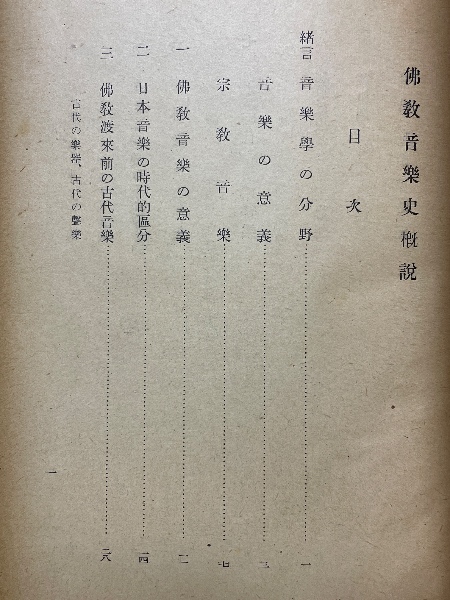 佛教音樂史槪說
目次
緖言 音樂學の分野……一
音樂の意義……三
宗教音樂……七
一 佛教音樂の意義……一二
二 日本音樂の時代的區分……一四
三 佛教渡來前の古代音樂……一八
古代の樂器、古代の聲樂
一